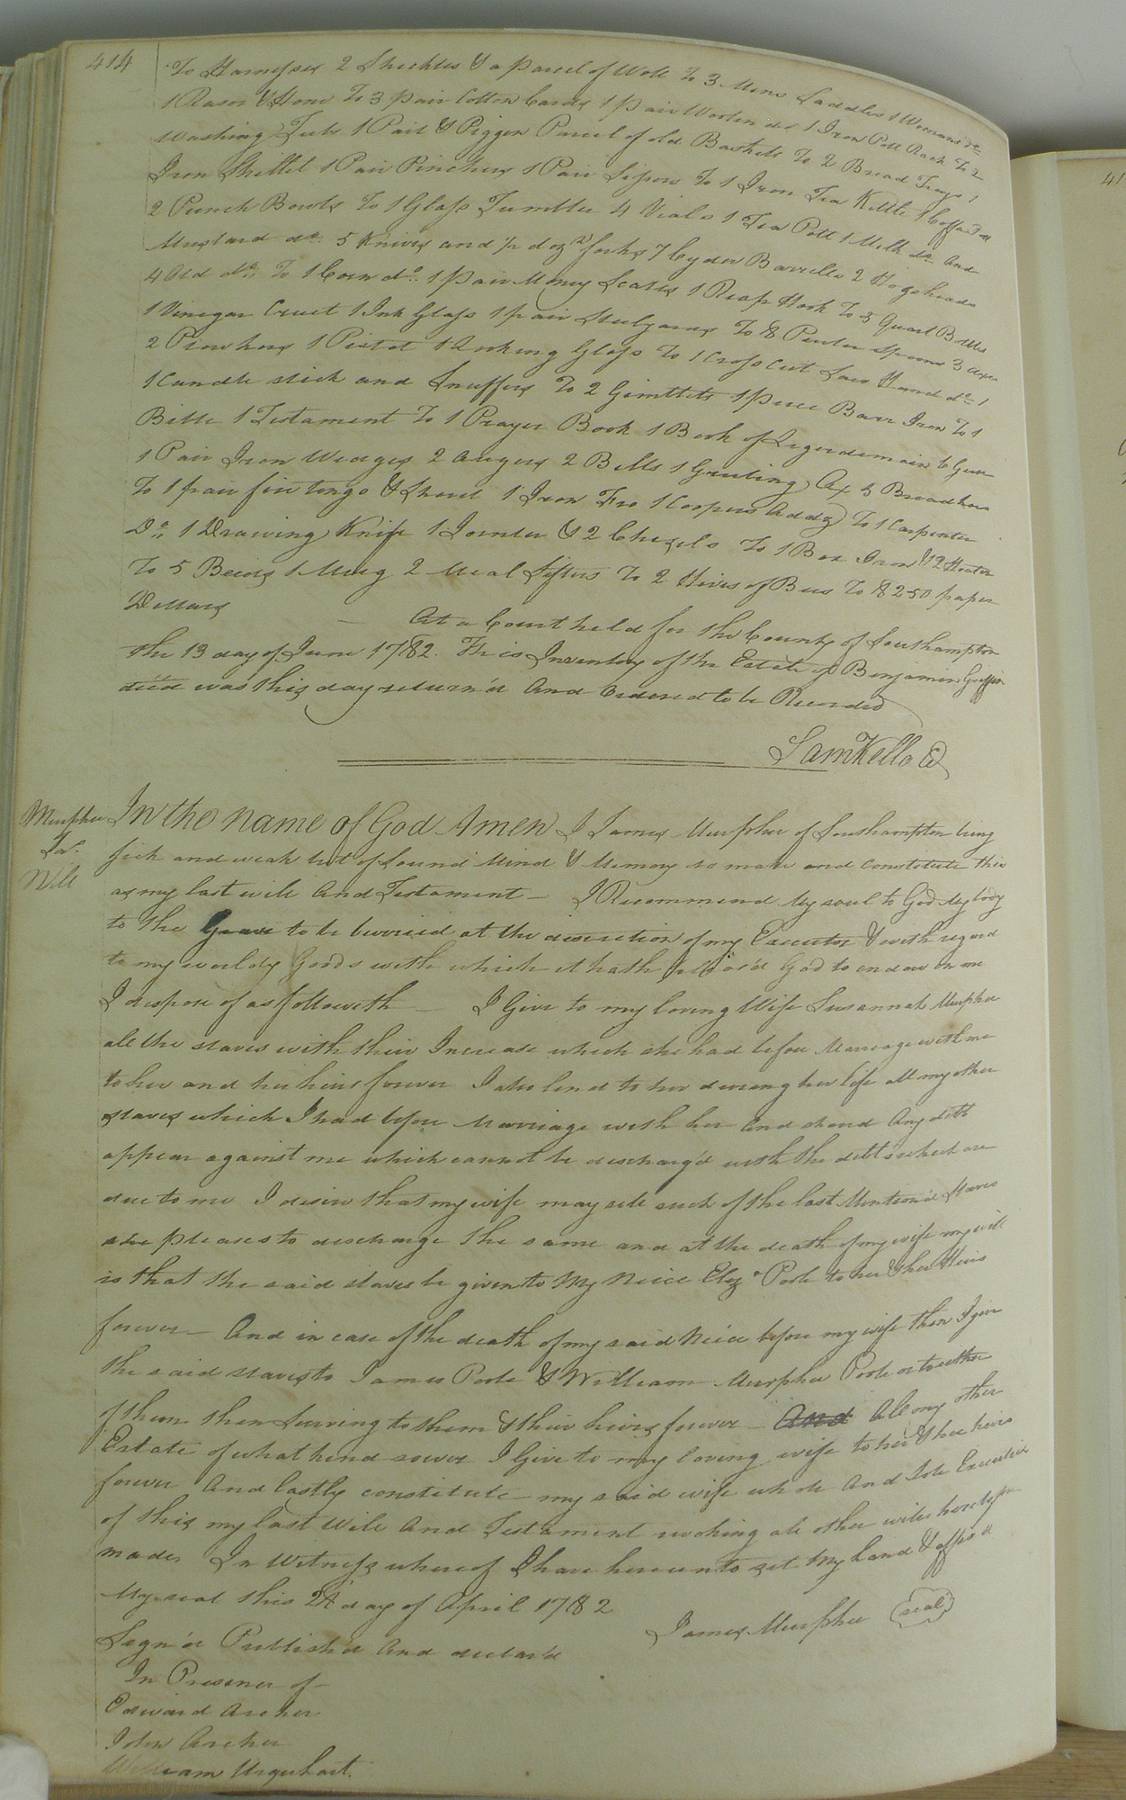 414
To Harnesses 2 Shickles & a parcel of Woll To 3 Mens Saddles 1 Womans do
1 Rasor & Hone To 3 pair Cotton Cards 1 pair Woolen do 1 Iron Pott Rack To 2
Washing Tubs 1 Pail & Piggen Parcel of old Baskets To 2 Bread Trays 1
Iron Skillet 1 Pair Pinchers 1 Pair To 1 Iron Tea Kettle 1 Coffee do
2 Punch Bowls To 1 Glass Tumbler 4 Vials 1 Tea Pott 1 Milk do And
Mustard do. 5 Knives and ½ doz forks 7 Cyder Barrells 2 Hogsheads
4 Old do. To 1 Corn do. 1 pair Money Scales 1 Reap Hook To 3 Quart Bottles
1 Vinegar Cruet 1 Ink Glass 1 pair Stilyards To 8 Pewter Spoons 3 axes
2 Plowhoes 1 Pistol 1 Looking Glass To 1 Cross Cut Saw Hand do. 1
1 Candle stick and Snuffers To 2 Gimblets 1 piece Barr Iron To 1
Bible 1 Testament To 1 Prayer Book 1 Book of Legerdemain 6 Geese
1 Pair Iron Wedges 2 Augers 2 Bells 1 Grubing Ax 3 Broadhoes
To 1 pair fire tongs & Shovel 1 Iron Fro 1 Coopers Addz To 1 Carpenter
Do. 1 Drawing Knife 1 Jointer & 2 Chizels To 1 Box Iron & 2 Heaters
To 5 Beeds 1 Mug 2 Meal Sifters To 2 Hives of Bees To 8250 paper
Dollars — At a Court held for the County of Southampton
the 13 day of June 1782. This Inventory of the Estate of Benjamin Griffin
dec'd was this day return'd And Ordered to be Recorded
Sam Kello
Murphee
Jas.
Will
In the name of God Amen I James Murphee of Southampton being
sick and weak but of Sound Mind & Memory do make and constitute this
as my last will And Testament — I Recommend My soul to God My body
to the Grave to be burried at the discretion of my Executor & with regard
to my worldy Goods with which it hath pleas'd God to endow on me
I dispose of as followeth — I Give to my loving Wife Susannah Murphee
all the slaves with their Increase which she had before Marriage with me
to her and her heirs forever I also lend to her during her life all my other
slaves which I had before Marriage with her And shoud Any debt
appear against me which cannot be discharg'd with the debts which are
due to me I desire that my wife may sell such of the last Mention'd slaves
she pleases to discharge the same and at the death of my wife my will
is that the said slaves be given to My Neice Eliza Poole to her & her Heirs
forever — And in case of the death of my said Neice before my wife then I give
the said slaves to James Poole & William Murphee Poole or to either
of them then living to them & their heirs forever — And All my other
Estate of what kind soever I Give to my loving wife to her & her heirs
forever And lastly constitute my said wife whole And Sole Executrix
of this my last Will And Testament revoking all other wills heretofore
made. In Witness whereof I have hereunto set My hand & affix'd
My seal this 24 day of April 1782
James Murphee seal
Sign'd Publish'd And declar'd
In Presence of —
Edward Archer
John Archer
William Urquhart.